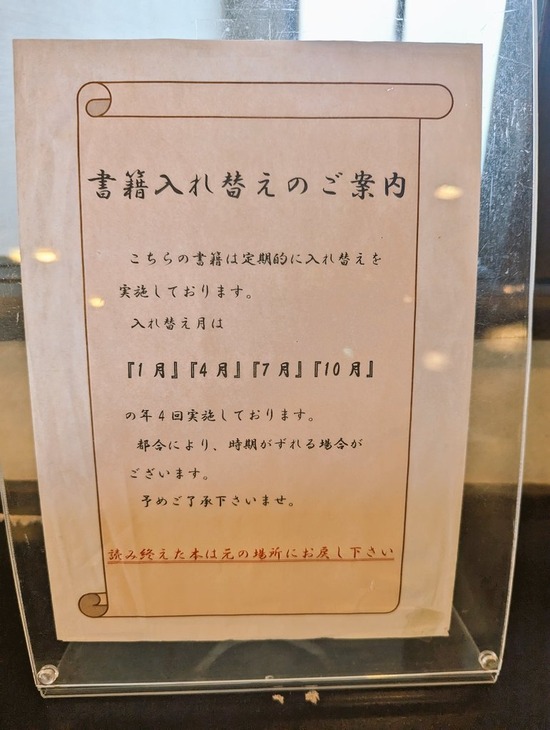 書籍入れ替えのご案内
こちらの書籍は定期的に入れ替えを
実施しております。
入れ替え月は
『1月』『4月』『7月』『10月』
の年4回実施しております。
都合により、時期がずれる場合が
ございます。
予めご了承下さいませ。
読み終えた本は元の場所にお戻し下さい